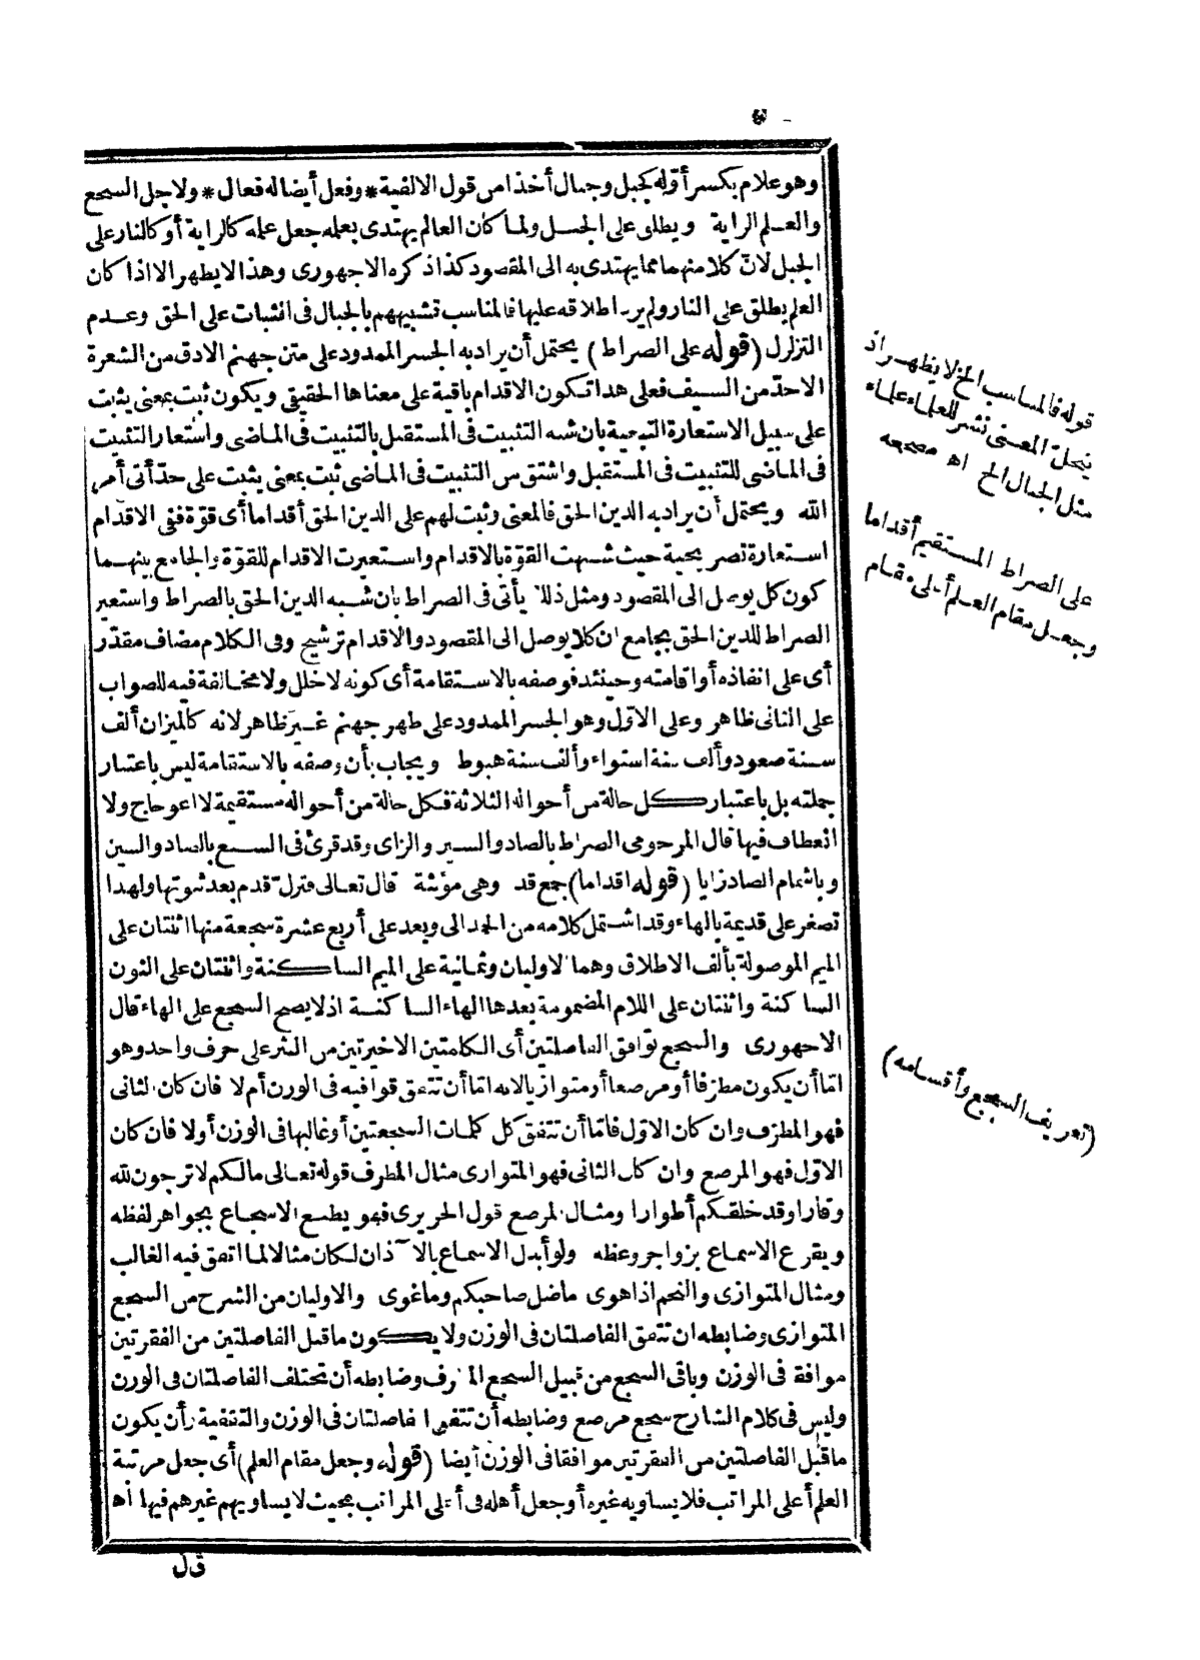 وهو علام بكسر أوّله كجبل وجبال أخذا من قول الالفية * وفعل أيضا له فعال * ولاجل السجع
والعلم الراية ويطلق على الجبل ولما كان العالم يهتدى بعلمه جعل علمه كالراية أو كالنار على
الجبل لانّ كلا منهما مما يهتدى به الى المقصود كذا ذكره الاجهورى وهذا لا يظهر الا اذا كان
العلم يطلق على النار ولم يرد اطلاقه عليها فالمناسب تشبيههم بالجبال فى الثبات على الحق وعدم
التزلزل (قوله على الصراط) يحتمل أن يراد به الجسر الممدود على متن جهنم الادق من الشعرة
الاحدّ من السيف فعلى هذا تكون الاقدام باقية على معناها الحقيقى ويكون ثبت بمعنى يثبت
على سبيل الاستعارة التبعية بان شبه التثبيت فى المستقبل بالتثبيت فى الماضى واستعار التثبيت
فى الماضى للتثبيت فى المستقبل واشتق من التثبيت فى الماضى ثبت بمعنى يثبت على حدّ أتى أمر
الله ويحتمل أن يراد به الدين الحق فالمعنى وثبت لهم على الدين الحق أقداما أى قوّة ففى الاقدام
استعارة تصريحية حيث شبهت القوّة بالاقدام واستعيرت الاقدام للقوّة والجامع بينهما
كون كل يوصل الى المقصود ومثل ذلك يأتى فى الصراط بان شبه الدين الحق بالصراط واستعير
الصراط للدين الحق بجامع ان كلا يوصل الى المقصود والاقدام ترشيح وفى الكلام مضاف مقدّر
أى على انفاذه أو اقامته وحينئذ فوصفه بالاستقامة أى كونه لا خلل ولا مخالفة فيه للصواب
على الثانى ظاهر وعلى الاوّل وهو الجسر الممدود على ظهر جهنم غير ظاهر لانه كالميزان ألف
سنة صعود وألف سنة استواء وألف سنة هبوط ويجاب بأن وصفه بالاستقامة ليس باعتبار
جملته بل باعتبار كل حالة من أحواله الثلاثة فكل حالة من أحواله مستقيمة لا اعوجاج ولا
انعطاف فيها قال المرحومى الصراط بالصاد والسين والزاى وقد قرئ فى السبع بالصاد والسين
وباشمام الصاد زايا (قوله اقداما) جمع قدم وهى مؤنثة قال تعالى فتزلّ قدم بعد ثبوتها ولهذا
تصغر على قديمة بالهاء وقد اشتمل كلامه من الحمد الى وبعد على أربع عشرة سجعة منها اثنتان على
الميم الموصولة بألف الاطلاق وهما الاوليان وثمانية على الميم الساكنة واثنتان على النون
الساكنة واثنتان على اللام المضمومة بعدها الهاء الساكنة اذ لا يصح السجع على الهاء قال
الاجهورى والسجع توافق الفاصلتين أى الكلمتين الاخيرتين من النثر على حرف واحد وهو
امّا أن يكون مطرّفا أو مرصعا أو متوازيا لانه امّا أن تتفق قوافيه فى الوزن أم لا فان كان الثانى
فهو المطرّف وان كان الاوّل فامّا أن تتفق كل كلمات السجعتين أو غالبها فى الوزن أولا فان كان
الاوّل فهو المرصع وان كان الثانى فهو المتوازى مثال المطرف قوله تعالى مالكم لا ترجون لله
وقارا وقد خلقكم أطوارا ومثال المرصع قول الحريرى فهو يطبع الاسجاع بجواهر لفظه
ويقرع الاسماع بزواجر وعظه ولو أبدل الاسماع بالآذان لكان مثالا لما اتفق فيه الغالب
ومثال المتوازى والنجم اذا هوى ماضل صاحبكم وما غوى والاوليان من الشرح من السجع
المتوازى وضابطه ان تتفق الفاصلتان فى الوزن ولا يكون ما قبل الفاصلتين من الفقرتين
موافقا فى الوزن وباقى السجع من قبيل السجع المطرف وضابطه أن تختلف الفاصلتان فى الوزن
وليس فى كلام الشارح سجع مرصع وضابطه أن تتفق الفاصلتان فى الوزن والتقفية وأن يكون
ما قبل الفاصلتين من الفقرتين موافقا فى الوزن أيضا (قوله وجعل مقام العلم) أى جعل مرتبة
العلم أعلى المراتب فلا يساويه غيره أو جعل أهله فى أعلى المراتب بحيث لا يساويهم غيرهم فيها اه
قال
قوله فالمناسب الخ لا يظهر اذ
يحلّ المعنى نشر للعلماء علماء
مثل الجبال الخ اه مصححه
على الصراط المستقيم أقداما
وجعل مقام العلم أعلى مقام
(تعريف السجع وأقسامه)